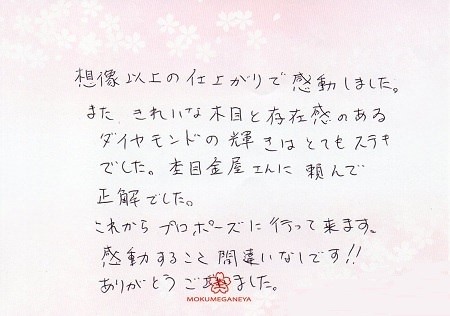 想像以上の仕上がりで感動しました。
また、きれいな木目と存在感のある
ダイヤモンドの輝きはとてもステキ
でした。杢目金屋さんに頼んで
正解でした。
これからプロポーズに行って来ます。
感動すること間違いなしです!!
ありがとうございました。
MOKUMEGANEYA